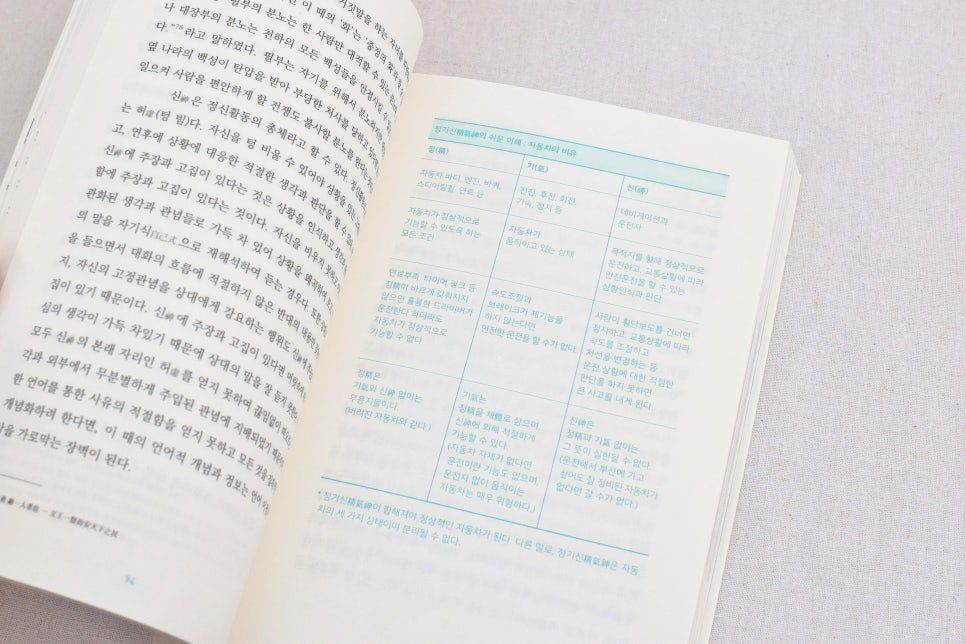 거짓말을 하는 자녀를
이 때의 '화'는 '중정의 화'
필부의 분노는 한 사람만 대적할 수 있는
나 대장부의 분노는 천하의 모든 백성들을 안정시킬 수
다."76라고 말하였다. 필부는 자기를 위해서 분노하지만
옆 나라의 백성이 탄압을 받아 부당한 처사를 당하고
일으켜 사람을 편안하게 할 전쟁도 불사할 분노를 한다
신神은 정신활동의 총체라고 할 수 있다.
는 허虛(텅 빔)다. 자신을 텅 비울 수 있어야 상황을 있는
고, 연후에 상황에 대응한 적절한 생각과 판단을 할 수
신神에 주장과 고집이 있다는 것은 상황을 인식하고
함에 주장과 고집이 있다는 것이다. 자신을 비우지 못하고
관화된 생각과 관념들로 가득 차 있어 상황을 왜곡하여
의 말을 자기식自己式으로 재해석하여 듣는 경유다. 또한
을 들으면서 대화의 흐름에 적절하지 않은 반대의 내용만
지, 자신의 고정관념을 상대에게 강요하는 행위도 신神에
집이 있기 때문이다. 신神에 주장과 고집이 있다면
심의 생각이 가득 차있기 때문에 상대의 말을 잘 듣지 못한
모두 신神의 본래 자리인 허虛를 얻지 못하여 끊임없이
각과 외부에서 무분별하게 주입된 관념에 지배되었기 때문
한 언어를 통한 사유의 적절함을 얻지 못하고 모든 것을
개념화하려 한다면, 이 때의 언어적 개념과 정보는 언어
을 가로막는 장벽이 된다.
一人者也 — 文王一怒而安天下之民
94
정기신精氣神의 쉬운 이해 : 자동차의 비유
정(精) 기(氣) 신(神)
자동차 바디, 엔진, 바퀴,
스티어링휠, 연료 등
전진, 후진, 회전,
가속, 정지 등
네비게이션과
운전자
자동차가 정상적으로
기능할 수 있도록 하는
모든 조건
자동차가
움직이고 있는 상태
목적지를 향해 정상적으로
운전하고, 교통상황에 따라
안전운전을 할 수 있는
상황인식과 판단
연료부족, 타이어 펑크 등
정精이 바르게 갖춰지지
않으면 훌륭한 드라이버가
운전한다 하더라도
자동차가 정상적으로
기능할 수 없다
속도조절과
브레이크가 제기능을
하지 않는다면
안전한 운전을 할 수가 없다
사람이 횡단보도를 건너면
정지하고, 교통상황에 따라
속도를 조절하고
차선을 변경하는 등
운전 상황에 대한 적절한
판단을 하지 못하면
큰 사고를 내게 된다.
정精은
기氣와 신神 없이는
무용지물이다
(버려진 자동차와 같다.)
기氣는
정精을 체體로 삼으며,
신神에 의해 적절하게
기능할 수 있다.
(자동차 자체가 없다면
운전이란 기능도 없으며,
운전자 없이 움직이는
자동차는 매우 위험하다.)
신神은
정精과 기氣 없이는
그 뜻이 실현될 수 없다.
(운전에서 부산에 가고
싶어도 잘 정비된 자동차가
없다면 갈 수가 없다.)
* 정기신精氣神이 합해져야 정상적인 자동차가 된다. 다른 말로, 정기신精氣神은 자동
차의 세 가지 상태이며 분리될 수 없다.